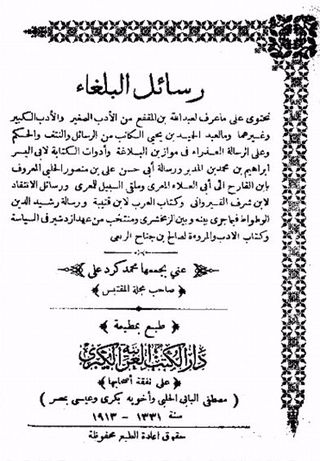 رسائل البلغاء
تحتوى على ماعرف لعبدالله بن المقفع من الأدب الصغير والأدب الكبير
وغيرهما ومالعبد الحميد بن يحيى الكاتب من الرسائل والنتف والحكم
وعلى الرسالة العذراء فى موازين البلاغة وأدوات الكتابة لابى اليسر
ابراهيم بن محمد بن المدبر ورسالة أبى حسن على بن منصور الحلبى المعروف
بابن القارح الى أبى العلاء المعرى وملقى السبيل للمعرى ورسائل الانتقاد
لابن شرف القيروانى وكتاب العرب لابن قتيبة ورسالة رشيد الدين
الوطواط فيما جرى بينه وبين الزمخشرى ومنتخب من عهد أزدشير فى السياسة
وكتاب الادب والمروءة لصالح بن جناح الربعى
عنى بجمعها محمد كرد على
صاحب مجلة المقتبس
طبع بمطبعة
دار الكتب العربية الكبرى
على نفقة أصحابها
( مصطفى البابى الحلبى وأخويه بكرى وعيسى بمصر )
سنة ١٣٣١ – ١٩١٣
حقوق اعادة الطبع محفوظة